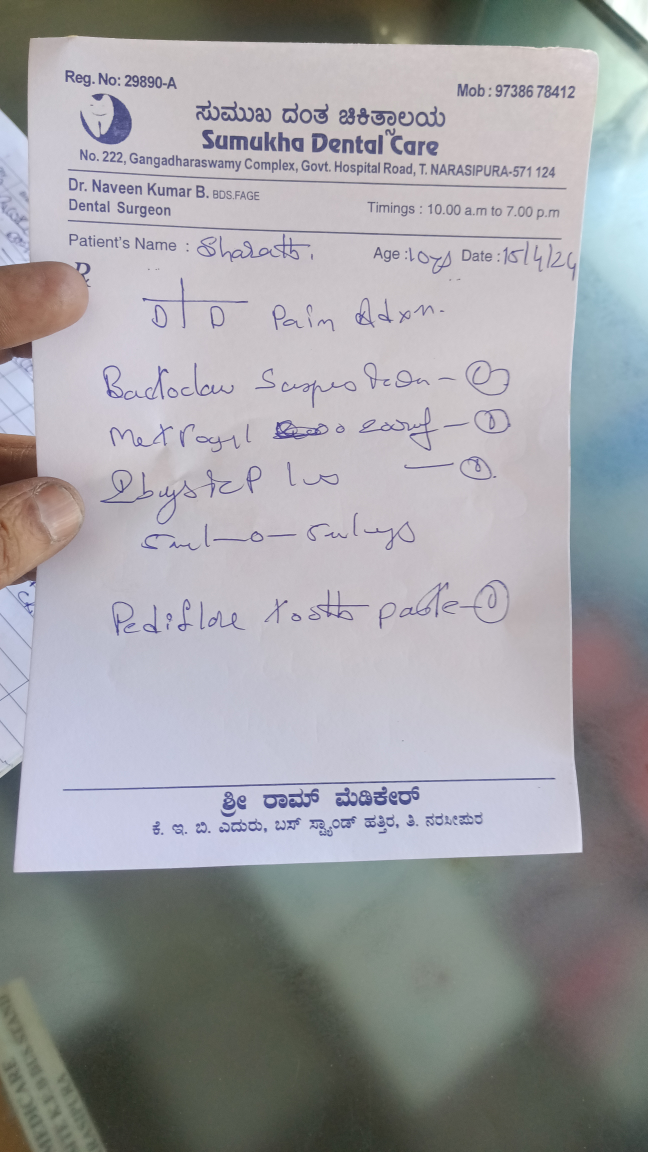 Reg. No: 29890-A
Mob : 97386 78412
ಸುಮುಖ ದಂತ ಚಿಕಿತ್ಸಾಲಯ
Sumukha Dental Care
No. 222, Gangadharaswamy Complex, Govt. Hospital Road, T. NARASIPURA-571 124
Dr. Naveen Kumar B. BDS.FAGE
Dental Surgeon
Timings : 10.00 a.m to 7.00 p.m
Patient's Name : Sharath. Age : 10ys Date : 15/4/24
D D Pain
Bactoclav Suspension -
Metrogyl 200mg - 1
P lus
5ml-0-5ml
Pediflore tooth paste - 1
ಶ್ರೀ ರಾಮ್ ಮೆಡಿಕೇರ್
ಕೆ. ಇ. ಬಿ. ಎದುರು, ಬಸ್ ಸ್ಟ್ಯಾಂಡ್ ಹತ್ತಿರ, ತಿ. ನರಸೀಪುರ
MEDICARE